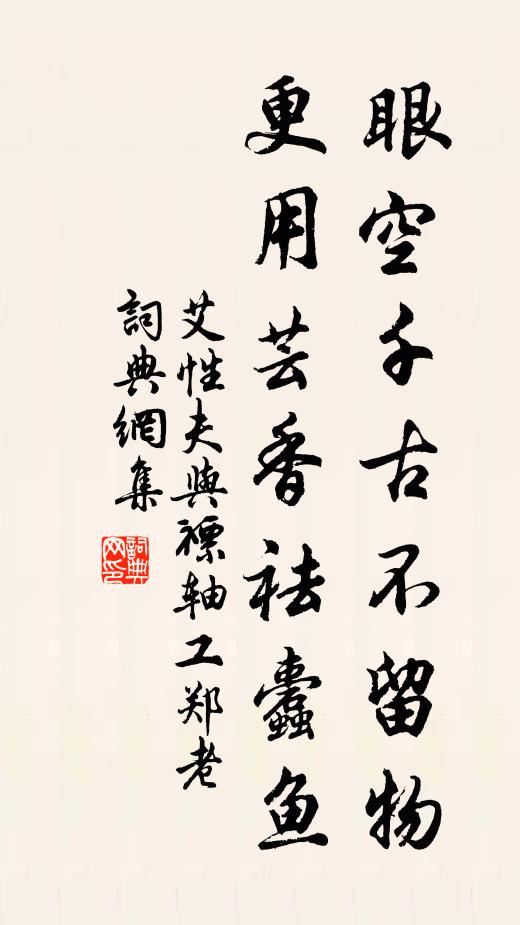 眼空千古不留物
更用芸香袪蠹鱼
艾性夫與褾軸工郑老
詞典網集
詞典网印